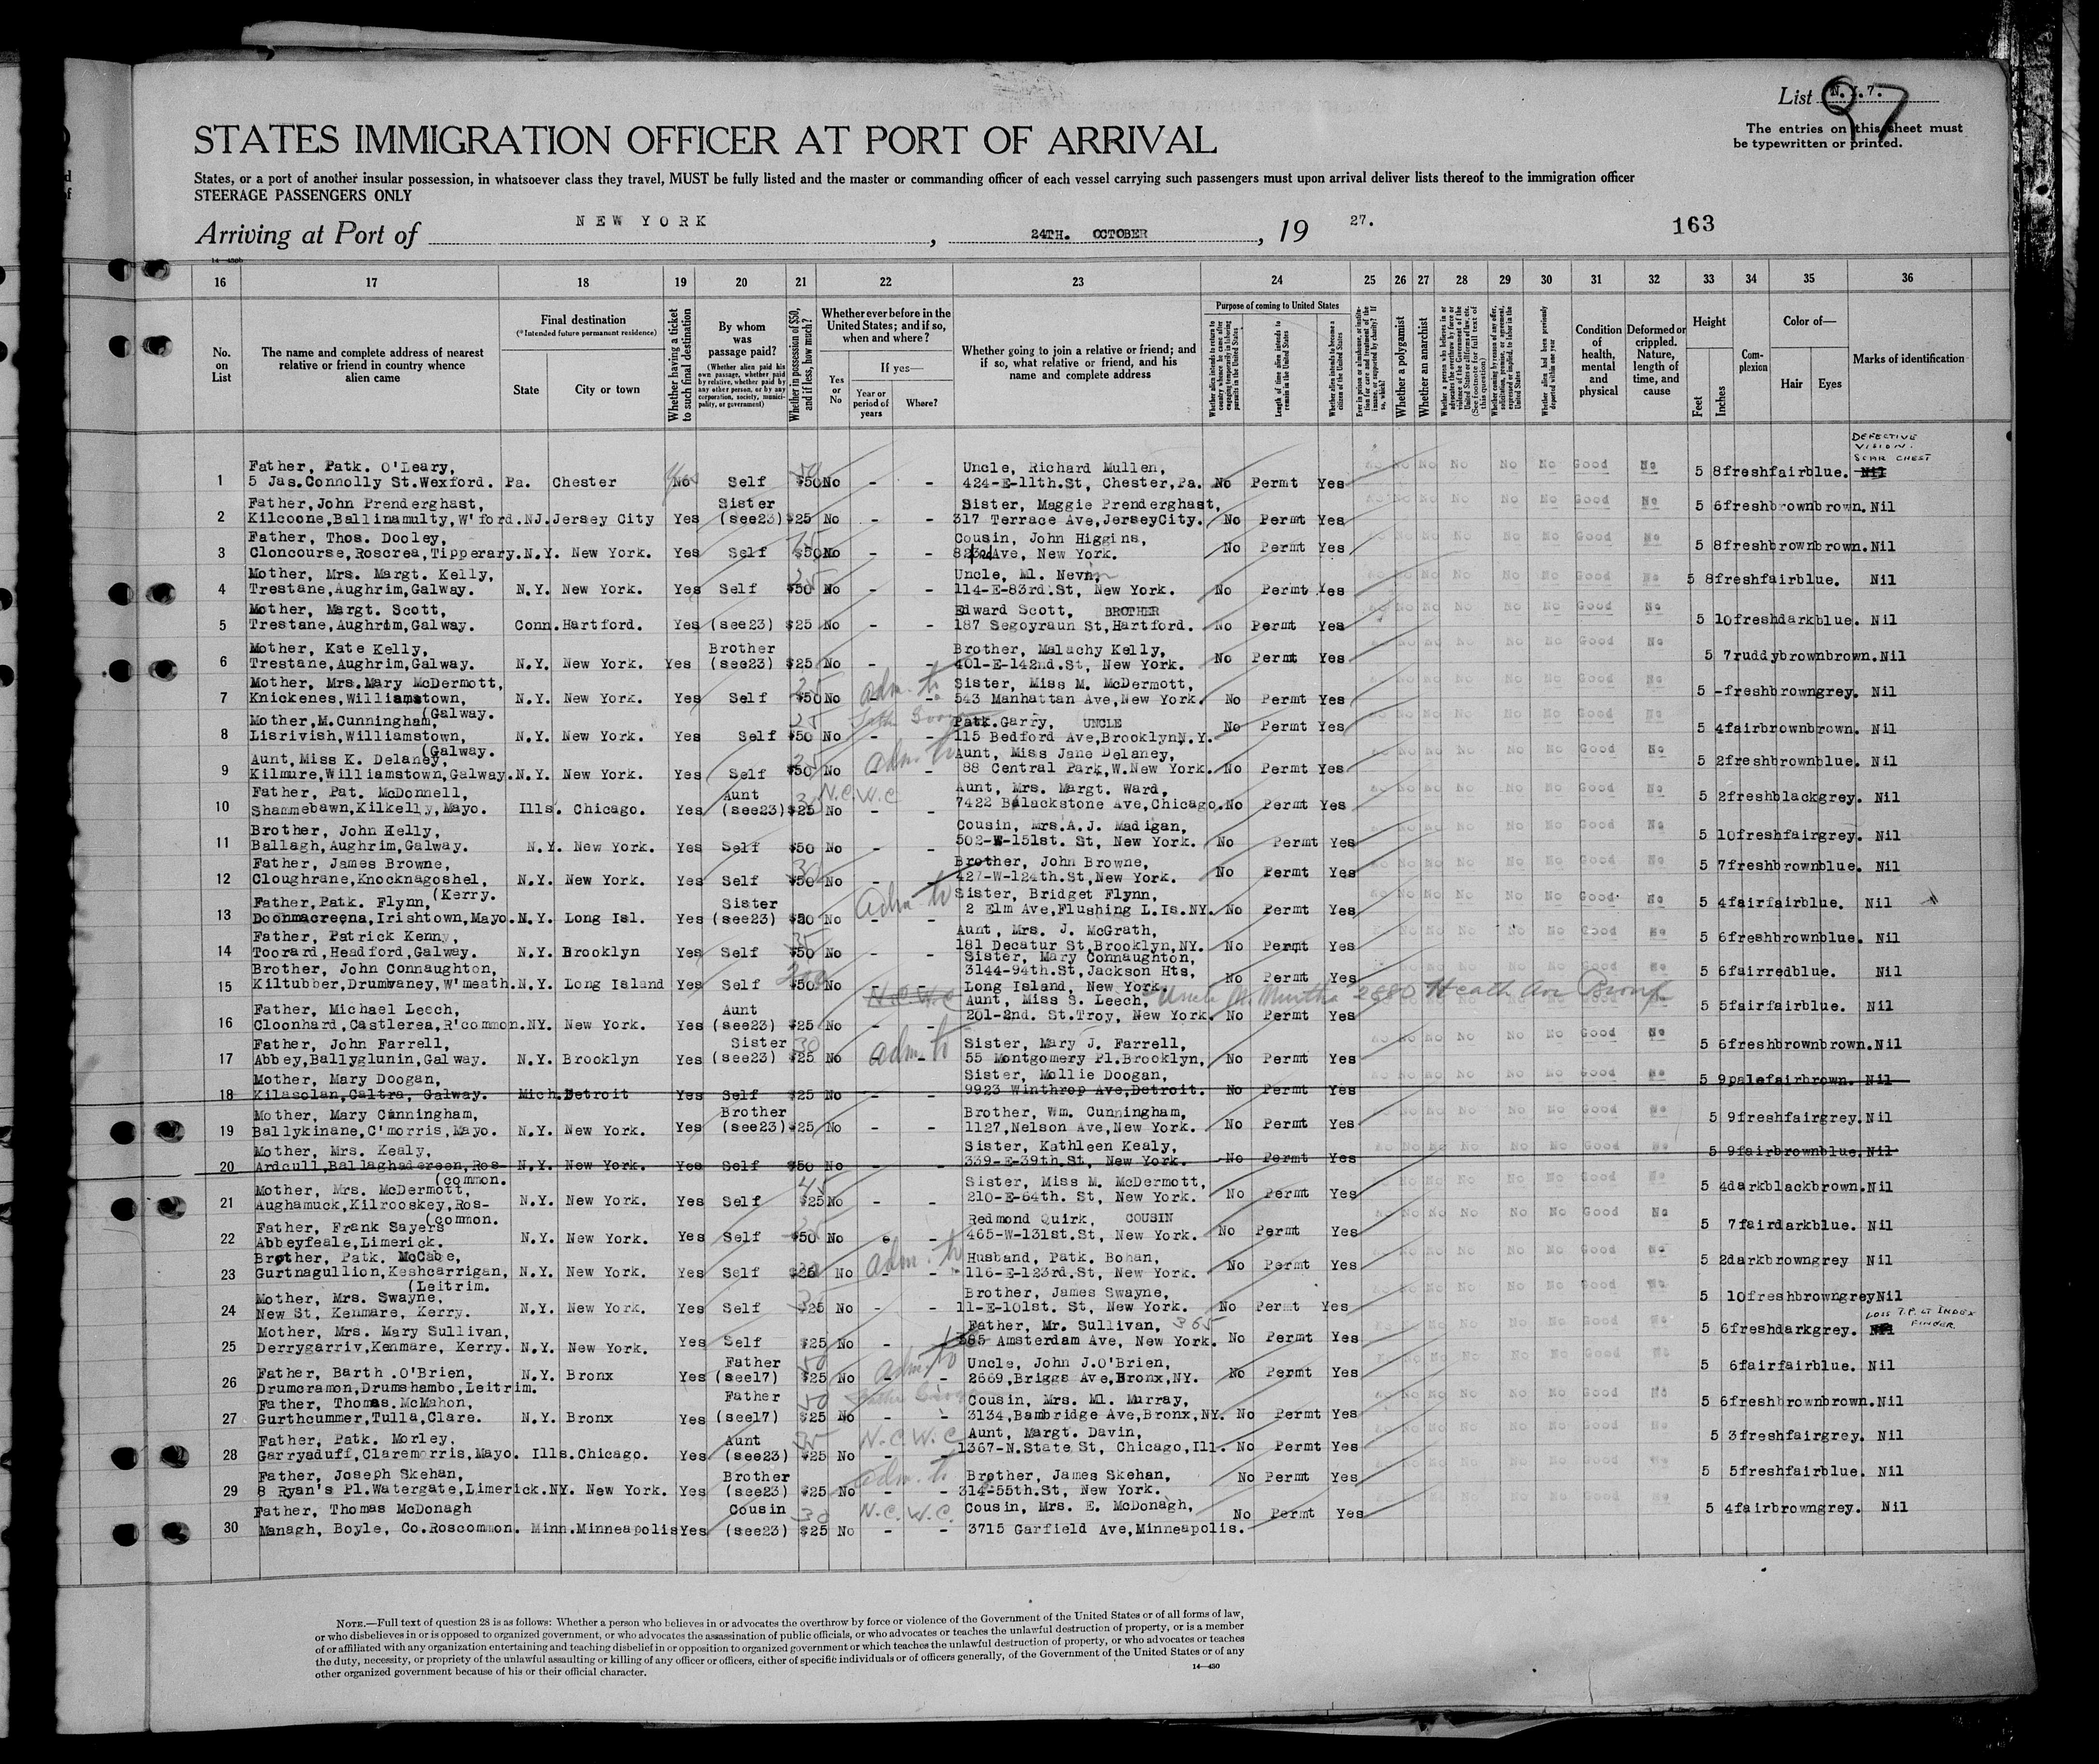 List N.Y.7.
97
The entries on this sheet must
be typewritten or printed.
STATES IMMIGRATION OFFICER AT PORT OF ARRIVAL
States, or a port of another insular possession, in whatsoever class they travel, MUST be fully listed and the master or commanding officer of each vessel carrying such passengers must upon arrival deliver lists thereof to the immigration officer
STEERAGE PASSENGERS ONLY
Arriving at Port of NEW YORK, 24TH. OCTOBER, 19 27.
163
16 17 18 19 20 21 22 23 24 25 26 27 28 29 30 31 32 33 34 35 36
No. on List
The name and complete address of nearest relative or friend in country whence alien came
Final destination
(*Intended future permanent residence)
State
City or town
Whether having a ticket to such final destination
By whom was passage paid?
(Whether alien paid his own passage, whether paid by relative, whether paid by any other person, or by any corporation, society, municipality, or government)
Whether in possession of $50, and if less, how much?
Whether ever before in the United States; and if so, when and where?
Yes or No
If yes—
Year or period of years
Where?
Whether going to join a relative or friend; and if so, what relative or friend, and his name and complete address
Purpose of coming to United States
Length of time alien intends to remain in the United States
Whether alien intends to become a citizen of the United States
Whether a polygamist
Whether an anarchist
Condition of health, mental and physical
Deformed or crippled. Nature, length of time, and cause
Height
Feet
Inches
Complexion
Color of—
Hair
Eyes
Marks of identification
DEFECTIVE
VISION.
SCAR CHEST
Father, Patk. O'Leary, Uncle, Richard Mullen,
1 5 Jas.Connolly St.Wexford. Pa. Chester No Yes Self $50 50 No - - 424-E-11th.St, Chester,Pa. No Permt Yes No No No No No No Good No 5 8 fresh fair blue. Nil
Father,John Prenderghast, Sister Sister, Maggie Prenderghast,
2 Kilcoone,Ballinamulty,W'ford. NJ. Jersey City Yes (see23) $25 No - - 317 Terrace Ave,JerseyCity. No Permt Yes No No No No No No Good No 5 6 fresh brown brown. Nil
Father, Thos. Dooley, Cousin, John Higgins,
3 Cloncourse,Roscrea,Tipperary. N.Y. New York. Yes Self $50 No - - Ave, New York. No Permt Yes No No No No No No Good No 5 8 fresh brown brown. Nil
Mother, Mrs. Margt. Kelly, Uncle, Ml. Nevn,
4 Trestane,Aughrim,Galway. N.Y. New York. Yes Self $50 No - - 114-E-83rd.St, New York. No Permt Yes No No No No No No Good No 5 8 fresh fair blue. Nil
Mother, Margt. Scott, Edward Scott, BROTHER
5 Trestane,Aughrim,Galway. Conn. Hartford. Yes (see23) $25 No - - 187 Segoyraun St,Hartford. No Permt Yes No No No No No No Good No 5 10 fresh dark blue. Nil
Mother, Kate Kelly, Brother Brother, Malachy Kelly,
6 Trestane,Aughrim,Galway. N.Y. New York. Yes (see23) $25 No - - 401-E-142nd.St, New York. No Permt Yes No No No No No No Good No 5 7 ruddy brown brown. Nil
Mother, Mrs.Mary McDermott, adm. to Sister, Miss M. McDermott,
7 Knickenes,Williamstown, (Galway. N.Y. New York. Yes Self $50 No - - 543 Manhattan Ave,New York. No Permt Yes No No No No No No Good No 5 - fresh brown grey. Nil
Mother,M.Cunningham, 25 Patk.Garry, UNCLE
8 Lisrivish,Williamstown, (Galway. N.Y. New York. Yes Self $50 No - - 115 Bedford Ave,BrooklynN.Y. No Permt Yes No No No No No No Good No 5 4 fair brown brown. Nil
Aunt, Miss K. Delaney, adm. to Aunt, Miss Jane Delaney,
9 Kilmure,Williamstown,Galway. N.Y. New York. Yes Self $50 No - - 88 Central Park,W.New York. No Permt Yes No No No No No No Good No 5 2 fresh brown blue. Nil
Father, Pat. McDonnell, Aunt N.C.W.C Aunt, Mrs. Margt. Ward,
10 Shammebawn,Kilkelly,Mayo. Ills. Chicago. Yes (see23) $25 No - - 7422 Blackstone Ave,Chicago. No Permt Yes No No No No No No Good No 5 2 fresh black grey. Nil
Brother, John Kelly, Cousin, Mrs.A.J. Madigan,
11 Ballagh,Aughrim,Galway. N.Y. New York. Yes Self $50 No - - 502-W-151st. St, New York. No Permt Yes No No No No No No Good No 5 10 fresh fair grey. Nil
Father, James Browne, 30 Brother, John Browne,
12 Cloughrane,Knocknagoshel, (Kerry. N.Y. New York. Yes Self $50 No - - 427-W-124th.St,New York. No Permt Yes No No No No No No Good No 5 7 fresh brown blue. Nil
Father,Patk. Flynn, Sister adm to Sister, Bridget Flynn,
13 Doonmacreena,Irishtown,Mayo. N.Y. Long Isl. Yes (see23) No - - 2 Elm Ave,Flushing L.Is.NY. No Permt Yes No No No No No No Good No 5 4 fair fair blue. Nil
Father, Patrick Kenny, 35 Aunt, Mrs. J. McGrath,
14 Toorard,Headford,Galway. N.Y. Brooklyn Yes Self $50 No - - 181 Decatur St,Brooklyn,NY. No Permt Yes No No No No No No Good No 5 6 fresh brown blue. Nil
Brother, John Connaughton, 200 Sister, Mary Connaughton,
15 Kiltubber,Drumraney,W'meath. N.Y. Long Island Yes Self $50 No - - 3144-94th.St,Jackson Hts, No Permt Yes No No No No No No Good No 5 6 fair red blue. Nil
Long Island, New York.
Father, Michael Leech, Aunt N.C.W.C Aunt, Miss S. Leech, Uncle M. Murtha 2880 Heath Ave Bronx
16 Cloonhard,Castlerea,R'common. NY. New York. Yes (see23) $25 No - - 201-2nd. St.Troy, New York. No Permt Yes No No No No No No Good No 5 5 fair fair blue. Nil
Father, John Farrell, Sister 30 adm. to Sister, Mary J. Farrell,
17 Abbey,Ballyglunin,Galway. N.Y. Brooklyn Yes (see23) $25 No - - 55 Montgomery Pl.Brooklyn, No Permt Yes No No No No No No Good No 5 6 fresh brown brown. Nil
Mother, Mary Doogan, Sister, Mollie Doogan,
18 Kilasolan,Caltra, Galway. Mich. Detroit Yes Self $25 No - - 9923 Winthrop Ave,Detroit. No Permt Yes No No No No No No Good No 5 9 pale fair brown. Nil
Mother, Mary Cunningham, Brother Brother, Wm. Cunningham,
19 Ballykinane,C'morris,Mayo. N.Y. New York. Yes (see23) $25 No - - 1127,Nelson Ave,New York. No Permt Yes No No No No No No Good No 5 9 fresh fair grey. Nil
Mother, Mrs. Kealy, Sister, Kathleen Kealy,
20 Ardcull,Ballaghadereen,Ros- (common. N.Y. New York. Yes Self $50 No - - 339-E-39th.St, New York. No Permt Yes No No No No No No Good No 5 9 fair brown blue. Nil
Mother, Mrs. McDermott, 45 Sister, Miss M. McDermott,
21 Aughamuck,Kilrooskey,Ros- (common. N.Y. New York. Yes Self $25 No - - 210-E-64th. St, New York. No Permt Yes No No No No No No Good No 5 4 dark black brown. Nil
Father, Frank Sayers Redmond Quirk, COUSIN
22 Abbeyfeale,Limerick. N.Y. New York. Yes Self $50 No - - 465-W-131st.St, New York. No Permt Yes No No No No No No Good No 5 7 fair dark blue. Nil
Brother, Patk. McCabe, adm. to Husband, Patk. Bohan,
23 Gurtnagullion,Keshcarrigan, (Leitrim. N.Y. New York. Yes Self No - - 116-E-123rd.St, New York. No Permt Yes No No No No No No Good No 5 2 dark brown grey Nil
Mother, Mrs. Swayne, Brother, James Swayne,
24 New St, Kenmare, Kerry. N.Y. New York. Yes Self $25 No - - 11-E-101st. St, New York. No Permt Yes No No No No No No Good No 5 10 fresh brown grey Nil
LOSS T.P. LT INDEX
FINGER
Mother, Mrs. Mary Sullivan, Father, Mr. Sullivan, 365
25 Derrygarriv,Kenmare, Kerry. N.Y. New York. Yes Self $25 No - Amsterdam Ave, New York. No Permt Yes No No No No No No Good No 5 6 fresh dark grey. Nil
Father, Barth .O'Brien, Father 50 adm. to Uncle, John J.O'Brien,
26 Drumcramon,Drumshambo,Leitrim. N.Y. Bronx Yes (see17) $25 No - - 2669,Briggs Ave,Bronx,NY. No Permt Yes No No No No No No Good No 5 6 fair fair blue. Nil
Father, Thomas.McMahon, Father 50 Cousin, Mrs. Ml. Murray,
27 Gurthcummer,Tulla,Clare. N.Y. Bronx Yes (see17) $25 No - - 3134,Bambridge Ave,Bronx,NY. No Permt Yes No No No No No No Good No 5 6 fresh brown brown. Nil
Father, Patk. Morley, Aunt 35 N.C.W.C Aunt, Margt. Davin,
28 Garryaduff,Claremorris,Mayo. Ills. Chicago. Yes (see23) $25 No - - 1367-N.State St, Chicago,Ill. No Permt Yes No No No No No No Good No 5 3 fresh fair grey. Nil
Father, Joseph Skehan, Brother adm. to Brother, James Skehan,
29 8 Ryan's Pl.Watergate,Limerick. NY. New York. Yes (see23) $25 No - - 314-55th.St, New York. No Permt Yes No No No No No No Good No 5 5 fresh fair blue. Nil
Father, Thomas McDonagh Cousin 30 N.C.W.C. Cousin, Mrs. E. McDonagh,
30 Managh, Boyle, Co.Roscommon. Minn. Minneapolis Yes (see23) $25 No - - 3715 Garfield Ave,Minneapolis. No Permt Yes No No No No No No Good No 5 4 fair brown grey. Nil
NOTE.—Full text of question 28 is as follows: Whether a person who believes in or advocates the overthrow by force or violence of the Government of the United States or of all forms of law,
or who disbelieves in or is opposed to organized government, or who advocates the assassination of public officials, or who advocates or teaches the unlawful destruction of property, or is a member
of or affiliated with any organization entertaining and teaching disbelief in or opposition to organized government or which teaches the unlawful destruction of property, or who advocates or teaches
the duty, necessity, or propriety of the unlawful assaulting or killing of any officer or officers, either of specific individuals or of officers generally, of the Government of the United States or of any
other organized government because of his or their official character.
14—430